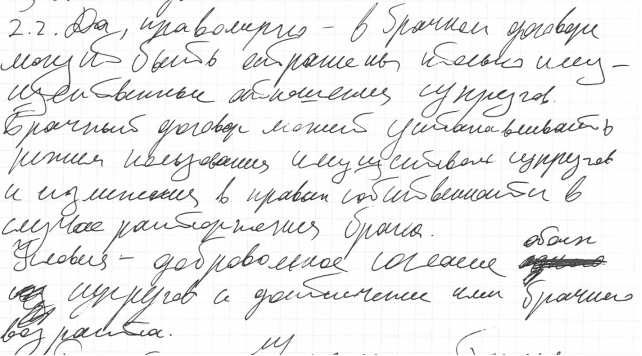 2.2. Да, правомерно – в брачном договоре
могут быть отражены только иму-
щественные отношения супругов.
Брачный договор может устанавливать
режим пользования имуществом супругов
и изменения в правах собственности в
случае расторжения брака.
Условия – добровольное согласие обоих
супругов и достижение ими брачного
возраста.